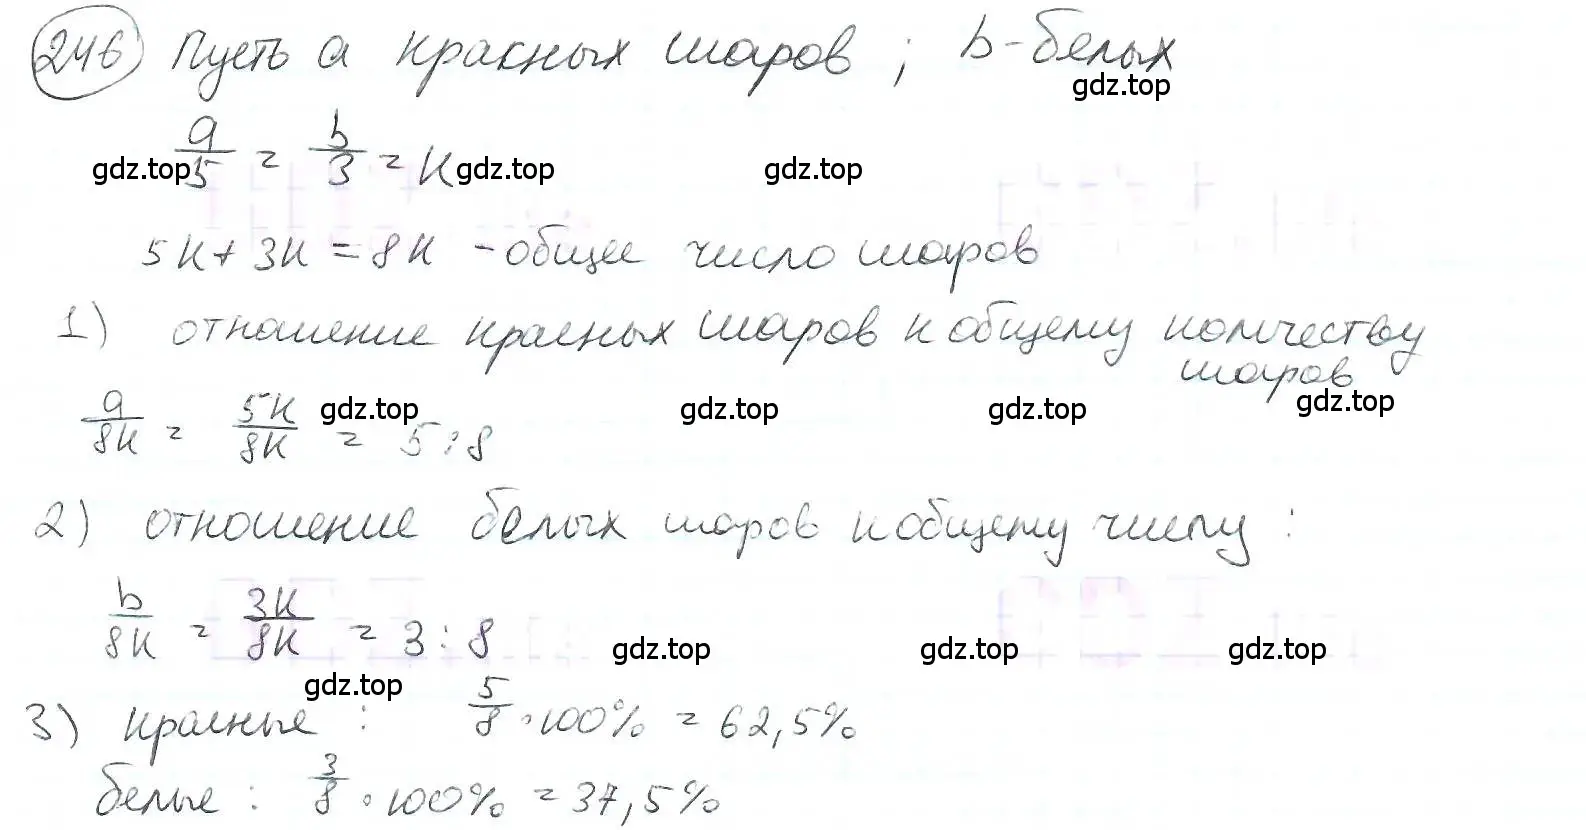 246 Пусть a красных шаров ; b - белых
gdz.top
a/5 = b/3 = к
gdz.top gdz.top gdz.top
5к + 3к = 8к - общее число шаров
1) отношение красных шаров к общему количеству
шаров
a/8к = 5к/8к = 5 : 8
gdz.top gdz.top gdz.top gdz.top
2) отношение белых шаров к общему числу :
b/8к = 3к/8к = 3 : 8
gdz.top gdz.top gdz.top
gdz.top
3) красные : 5/8 · 100% = 62,5%
белые : 3/8 · 100% = 37,5%